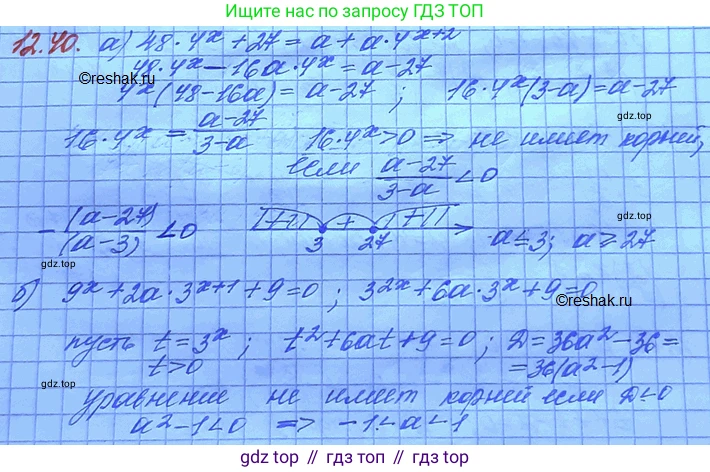 Ищите нас по запросу ГДЗ ТОП
12.40. а) 48·4ˣ+27=a+a·4ˣ⁺²
48·4ˣ-16a·4ˣ=a-27
4ˣ(48-16a)=a-27; 16·4ˣ(3-a)=a-27
16·4ˣ=(a-27)/(3-a) 16·4ˣ>0 ⇒ не имеет корней,
если (a-27)/(3-a)<0
-(a-27)/(a-3)<0 3 + 27 a≤3; a≥27
б) 9ˣ+2a·3ˣ⁺¹+9=0; 3²ˣ+6a·3ˣ+9=0
пусть t=3ˣ; t²+6at+9=0; Д=36a²-36=
t>0 =36(a²-1)
уравнение не имеет корней если Д<0
a²-1<0 ⇒ -1<a<1
©reshak.ru
©reshak.ru
©reshak.ru
gdz.top
gdz.top
gdz.top
gdz.top
gdz.top
gdz.top
gdz.top
gdz.top
gdz.top // gdz.top // gdz.top